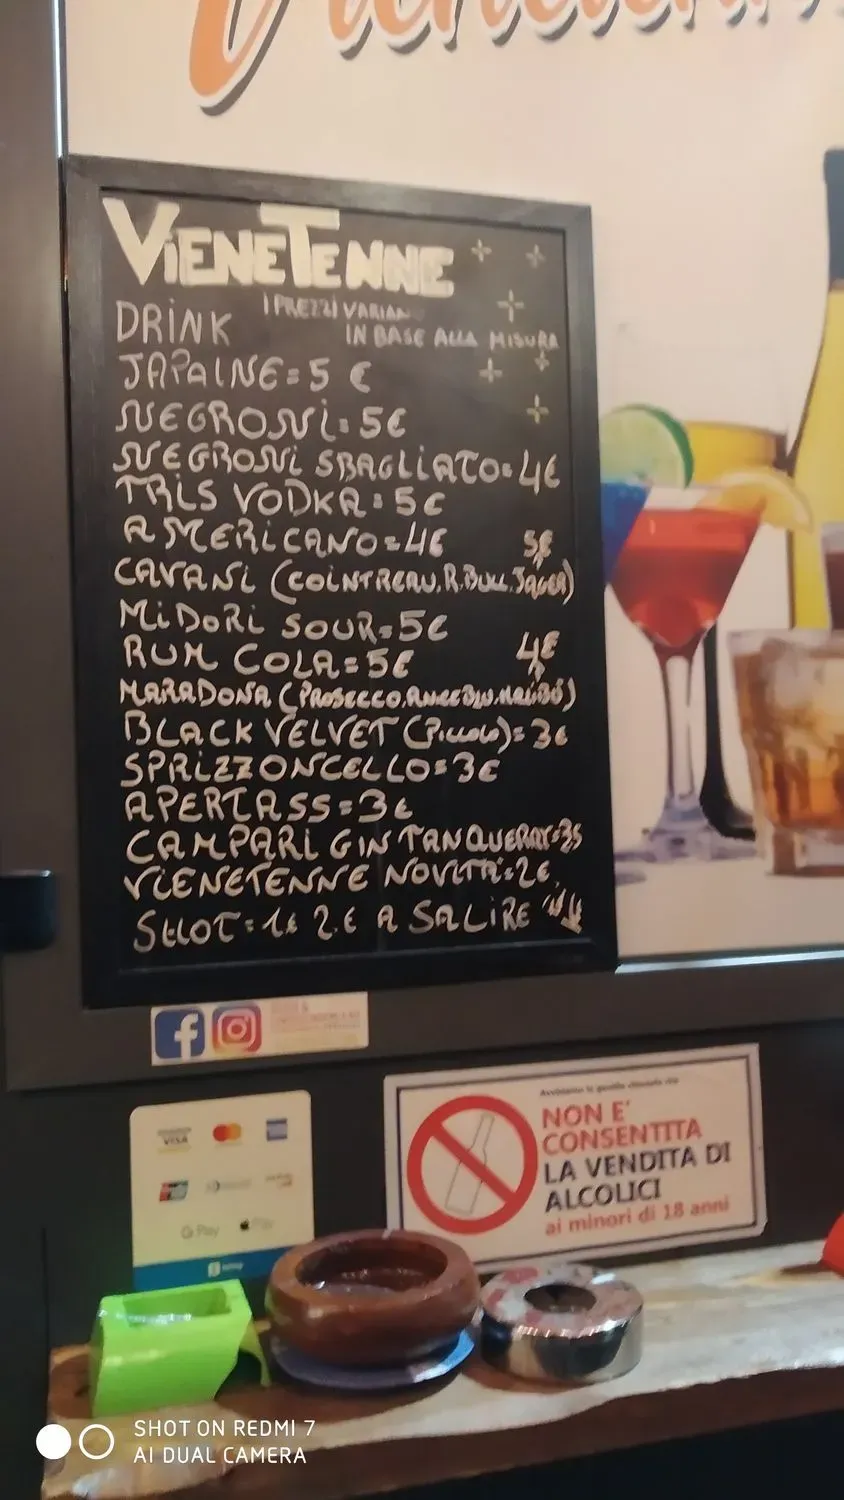 VIENETENNE
I PREZZI VARIAN
IN BASE ALLA MISURA
DRINK
JAPAINE=5 €
NEGRONI=5€
NEGRONI SBAGLIATO=4€
TRIS VODKA=5€
AMERICANO=4€
5€
CAVANI (COINTREAU.R.BULL.JAGER)
MIDORI SOUR=5€
RUM COLA=5€
4€
MARADONA (PROSECCO,
BLACK VELVET (PICCOLO)=3€
SPRIZZONCELLO=3€
APERTASS=3€
CAMPARI GIN TANQUERAY=
VIENETENNE NOVITÀ=2€
SHOT=1€ 2.€ A SALIRE
VISA
G Pay
Pay
NON E'
CONSENTITA
LA VENDITA DI
ALCOLICI
ai minori di 18 anni
SHOT ON REDMI 7
AI DUAL CAMERA